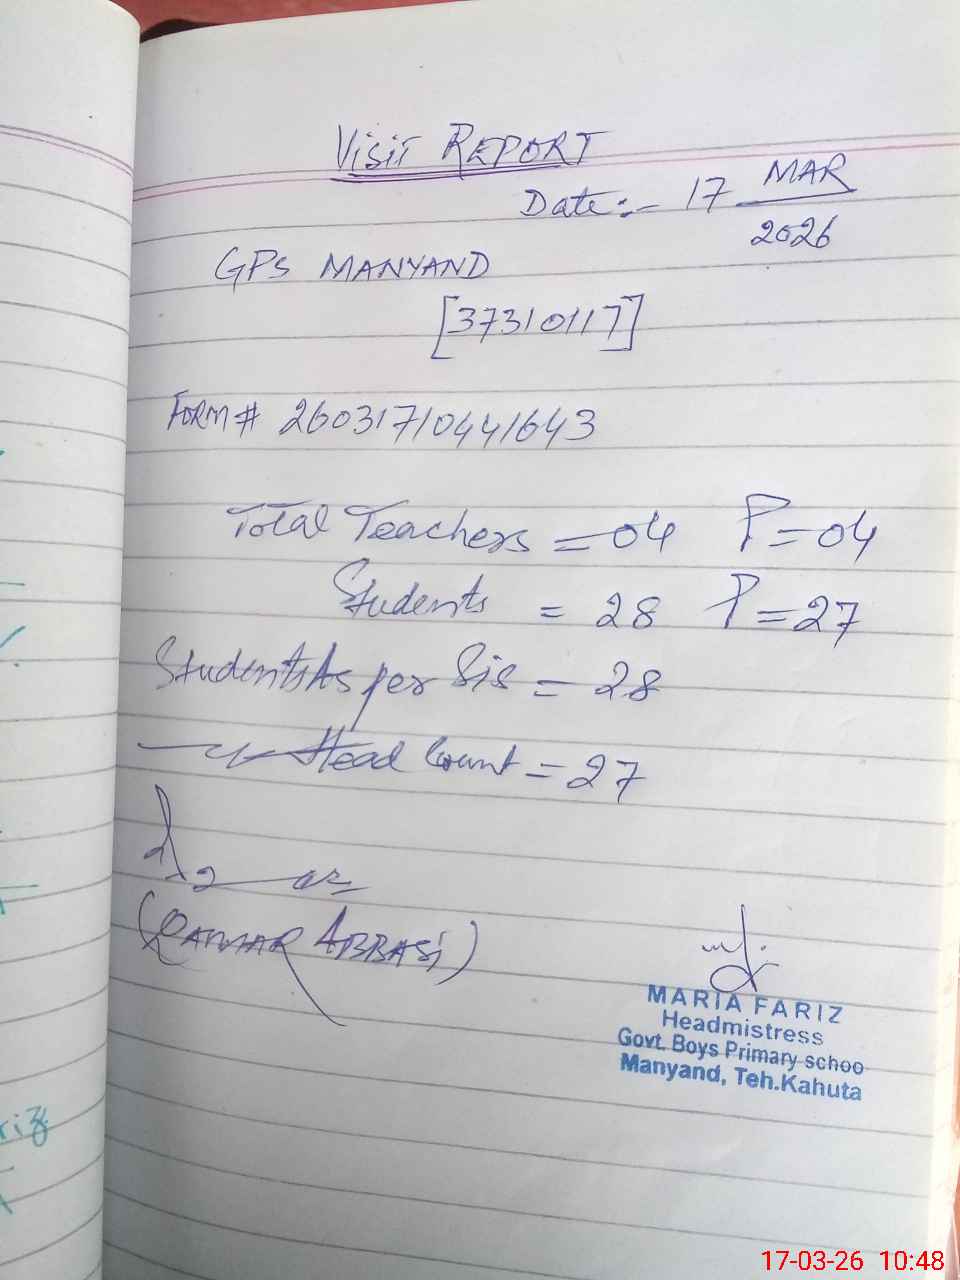 VISIT REPORT
Date:- 17 MAR
2026
GPS MANYAND
[37310117]
FORM # 260317104441643
Total Teachers = 04 P = 04
Students = 28 P = 27
Students As per Sis = 28
Head Count = 27
(QAMAR ABBASI)
MARIA FARIZ
Headmistress
Govt. Boys Primary schoo
Manyand, Teh.Kahuta
17-03-26 10:48